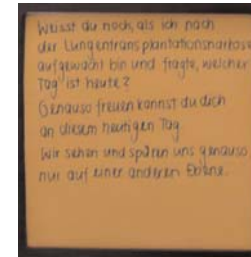 Weisst du noch, als ich nach
der Lungentransplantationsnarkose
aufgewacht bin und fragte, welcher
Tag ist heute?
Genauso freuen kannst du dich
an diesem heutigen Tag
Wir sehen und spüren uns genauso
nur auf einer anderen Ebene.